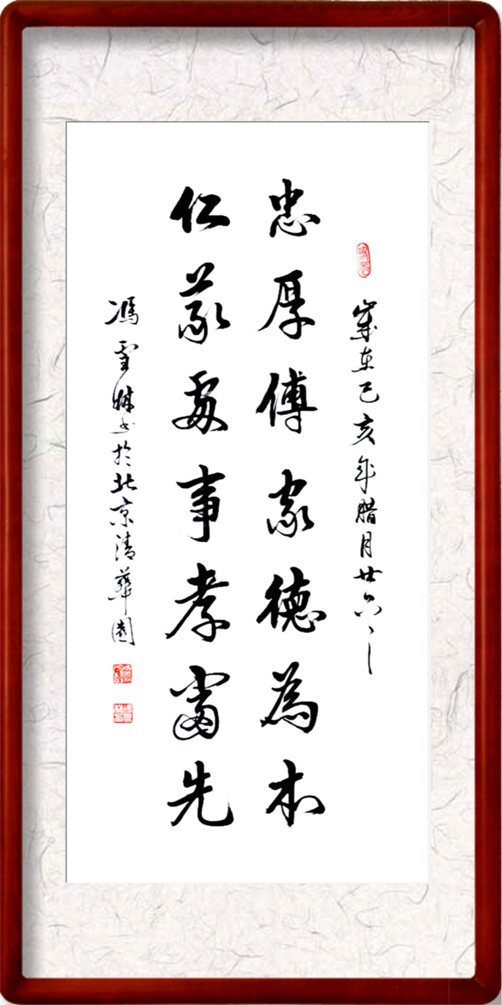 歲在己亥年腊月廿六
忠厚傳家德為本
仁義處事孝當先
馮雪書於北京清華園